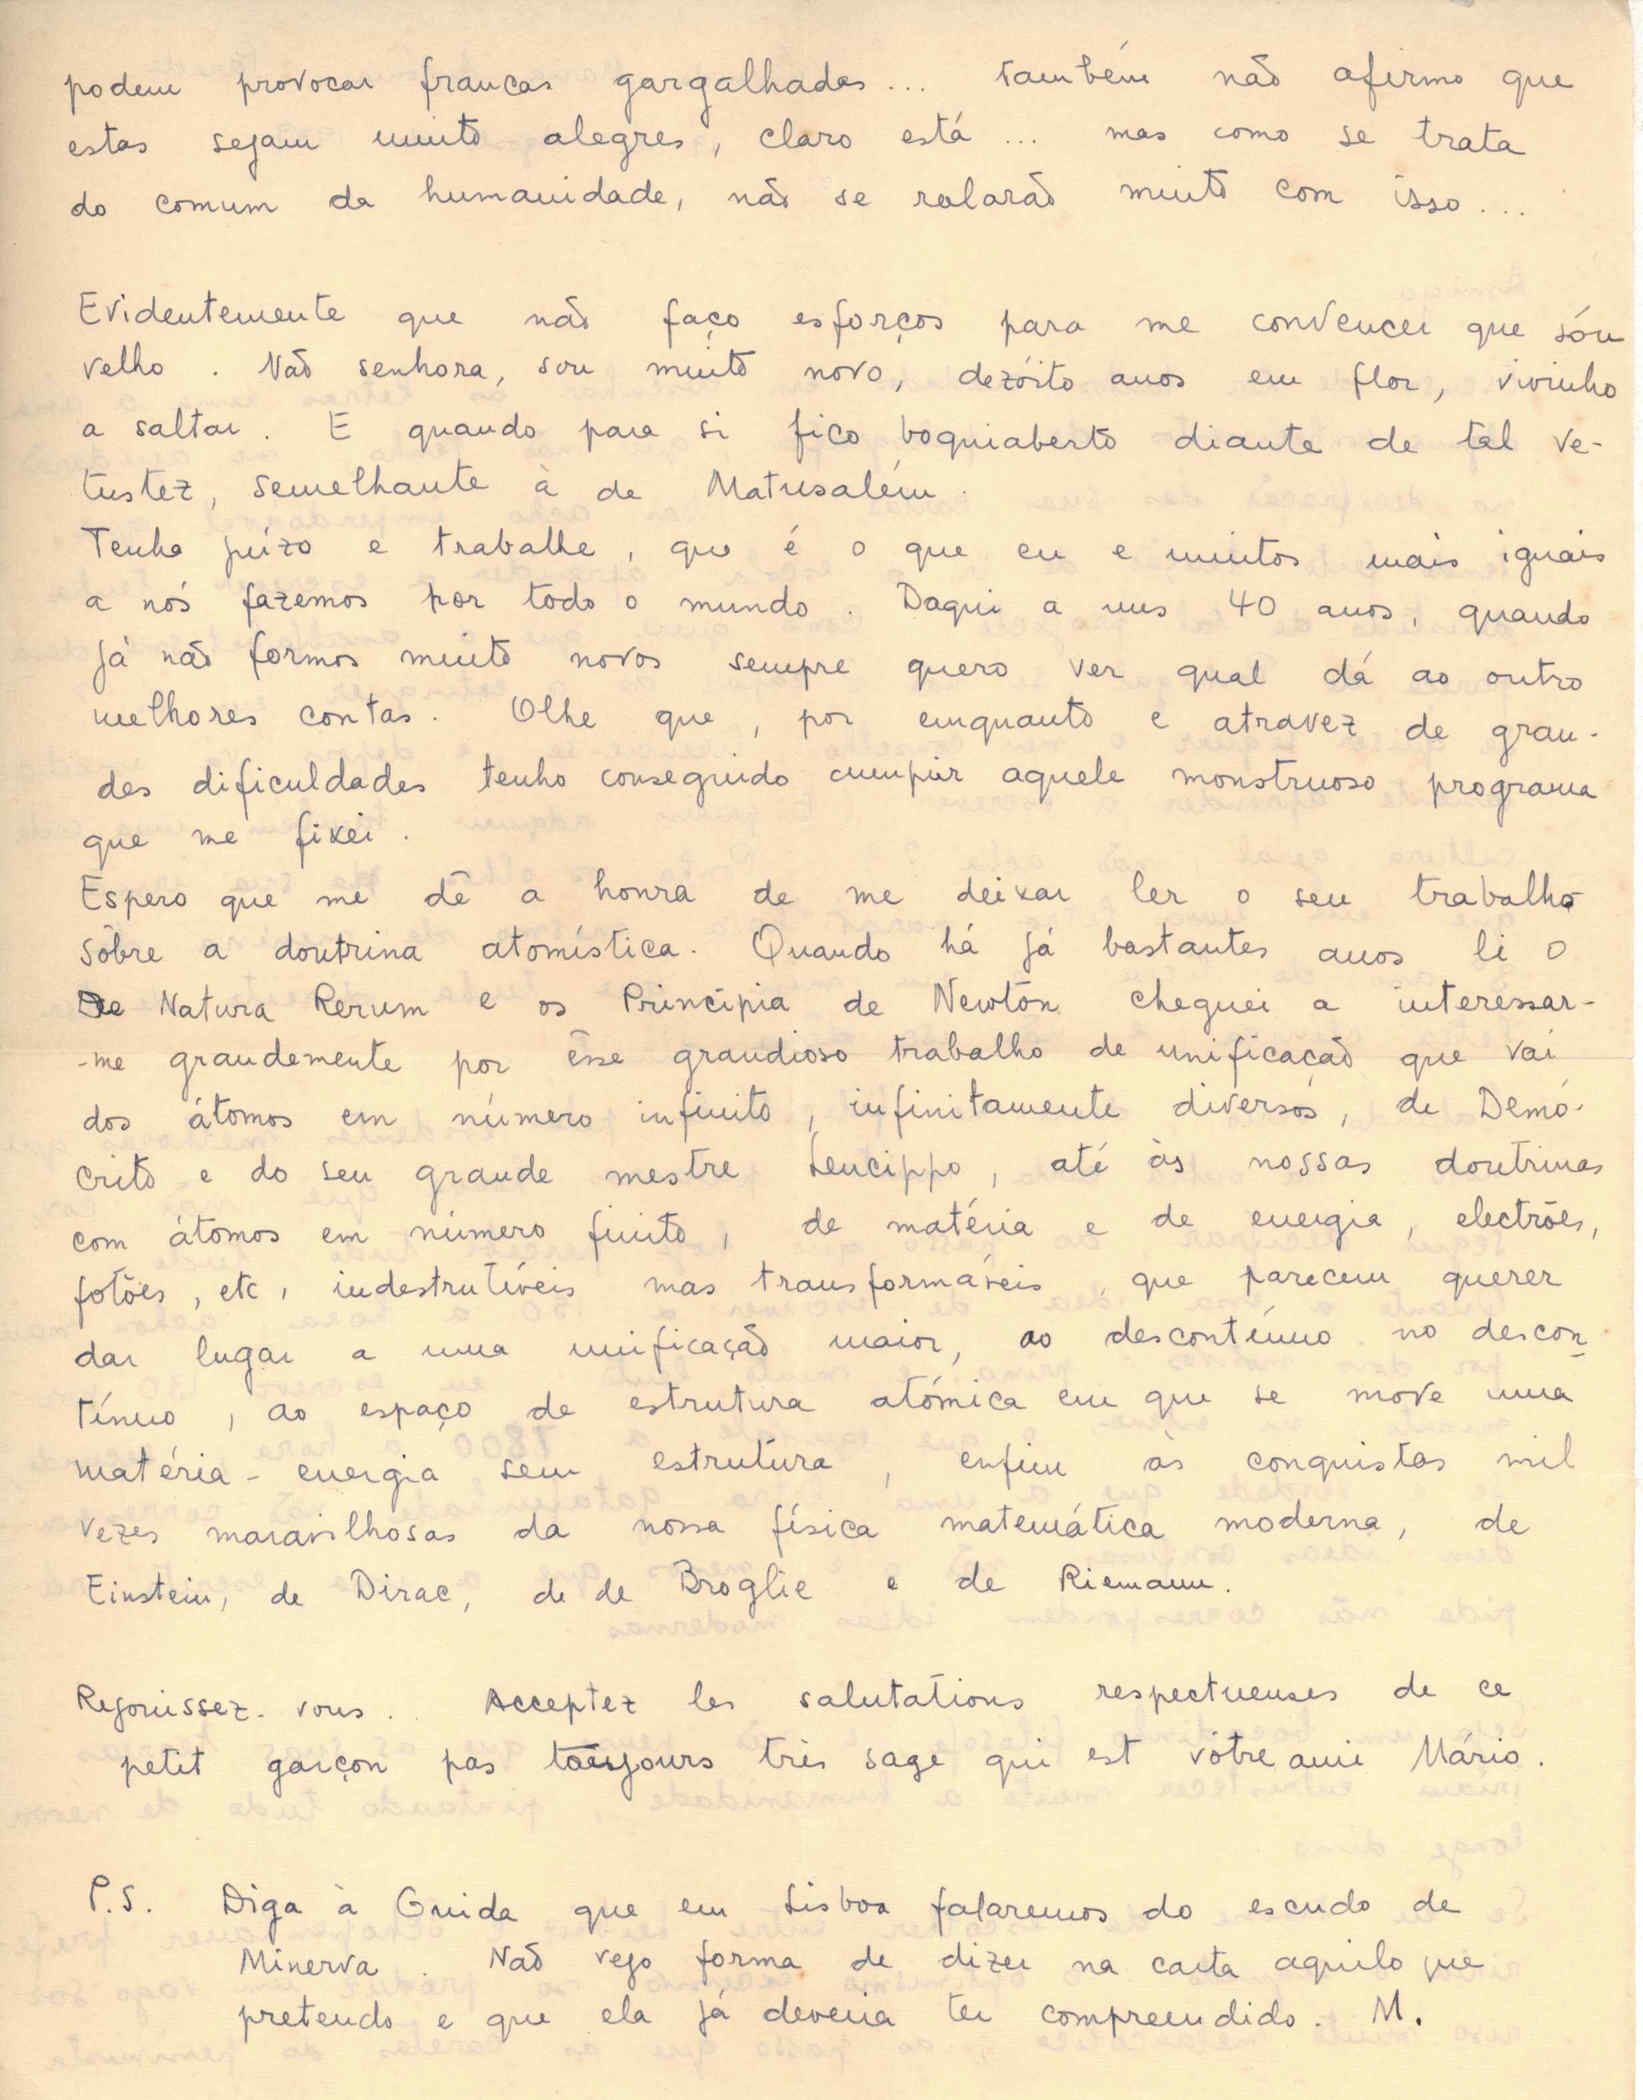 podem provocar francas gargalhadas... também não afirmo que
estas sejam muito alegres, claro está... mas como se trata
do comum da humanidade, não se ralarão muito com isso...
Evidentemente que não faço esforços para me convencer que sou
velho. Não senhora, sou muito novo, dezóito anos em flor, vivinho
a saltar. E quando para si fico boquiaberto diante de tal ve-
tustez, semelhante à de Matusalém.
Tenha juízo e trabalhe, que é o que eu e muitos mais iguais
a nós fazemos por todo o mundo. Daqui a uns 40 anos, quando
já não formos muito novos sempre quero ver qual dá ao outro
melhores contas. Olhe que, por emquanto e atravez de gran-
des dificuldades tenho conseguido cumprir aquele monstruoso programa
que me fixei.
Espero que me dê a honra de me deixar ler o seu trabalho
sôbre a doutrina atomística. Quando há já bastantes anos li o
De Natura Rerum e os Principia de Newton cheguei a interessar-
-me grandemente por êsse grandioso trabalho de unificação que vai
dos átomos em número infinito, infinitamente diversos, de Demó-
crito e do seu grande mestre Leucippo, até às nossas doutrinas
com átomos em número finito, de matéria e de energia, electrões,
fotões, etc, indestrutíveis mas transformáveis, que parecem querer
dar lugar a uma unificação maior, ao descontínuo no descon-
tínuo, ao espaço de estrutura atómica em que se move uma
matéria-energia sem estrutura, enfim às conquistas mil
vezes maravilhosas da nossa física matemática moderna, de
Einstein, de Dirac, de de Broglie e de Riemann.
Rejouissez-vous. Acceptez les salutations respectueuses de ce
petit garçon pas toujours très sage qui est vôtre ami Mário.
P.S. Diga à Guida que em Lisboa falaremos do escudo de
Minerva. Não vejo forma de dizer na carta aquilo que
pretendo e que ela já deveria ter compreendido. M.